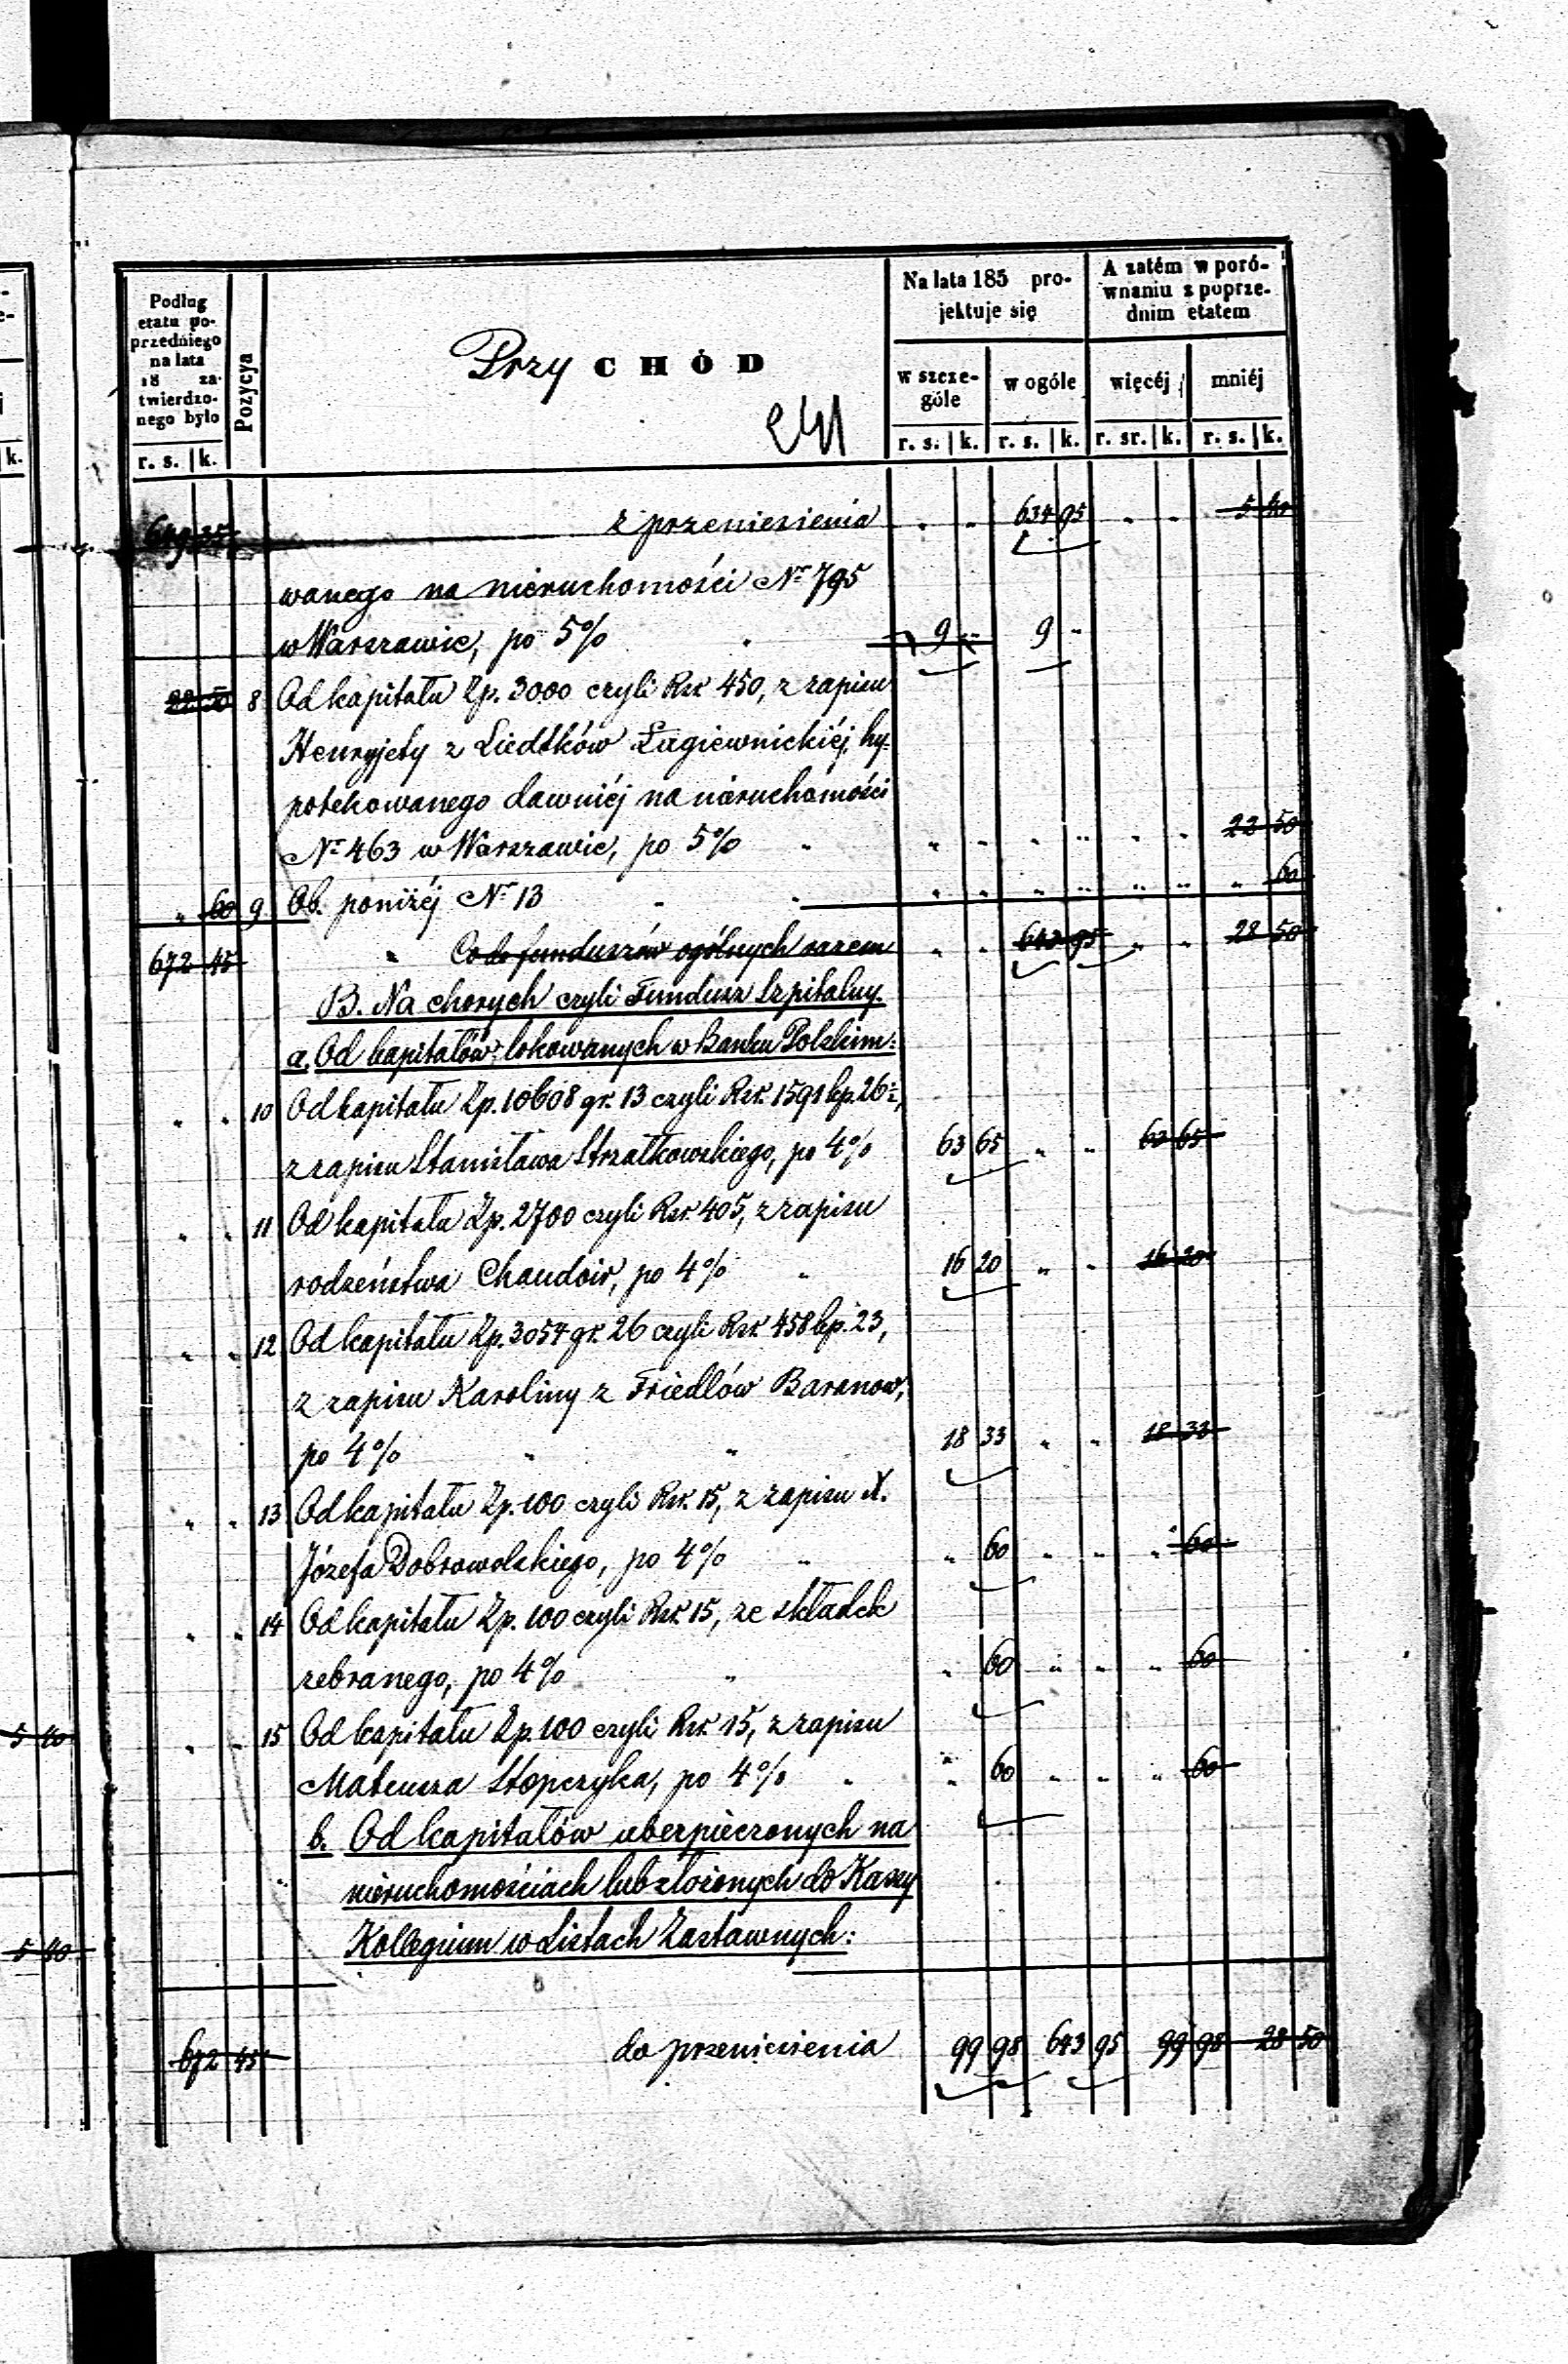 Podług etatu poprzedniego na lata 18 zatwierdzonego było
Pozycya
Przy CHÓD
Na lata 185 projektuje się
A zatém w porównaniu z poprzednim etatem
w szczególe
w ogóle
więcéj
mniéj
r. s. k.
r. s. k. r. s. k. r. sr. k. r. s. k.
649 35 z przeniesienia " " 634 95 " " 5 40
wanego na nieruchomości Nr 795
w Warszawie, po 5% " 9 " 9 "
22 50 8 Od kapitału Zp. 3000 czyli Rsr. 450, z zapisu
Henryjety z Liedtków Łagiewnickiéj, hy-
potekowanego dawniéj na nieruchomości
Nr 463 w Warszawie, po 5% " " " " " " " 22 50
" 60 9 Ob. poniżéj Nr 13 " " " " " " " " " 60
672 45 " Co do funduszów ogólnych razem " " 643 95 " " 28 50
B. Na chorych czyli Fundusz Szpitalny.
a. Od kapitałów, lokowanych w Banku Polskim:
" " 10 Od kapitału Zp. 10608 gr. 13 czyli Rsr. 1591 kp. 26½,
z zapisu Stanisława Strzałkowskiego, po 4% 63 65 " " 63 65
" " 11 Od kapitału Zp. 2700 czyli Rsr. 405, z zapisu
rodzeństwa Chaudoir, po 4% " 16 20 " " 16 20
" " 12 Od kapitału Zp. 3054 gr. 26 czyli Rsr. 458 kp. 23,
z zapisu Karoliny z Friedlów Baranow,
po 4% " " 18 33 " " 18 33
" " 13 Od kapitału Zp. 100 czyli Rsr. 15, z zapisu X.
Józefa Dobrowolskiego, po 4% " " 60 " " " 60
" " 14 Od kapitału Zp. 100 czyli Rsr. 15, ze składek
zebranego, po 4% " " 60 " " " 60
5 40
" " 15 Od kapitału Zp. 100 czyli Rsr. 15, z zapisu
Mateusza Stopczyka, po 4% " " 60 " " " 60
b. Od kapitałów ubezpieczonych na
nieruchomościach lub złożonych do Kassy
Kollegium w Listach Zastawnych:
5 40
672 45 do przeniesienia 99 98 643 95 99 98 28 50